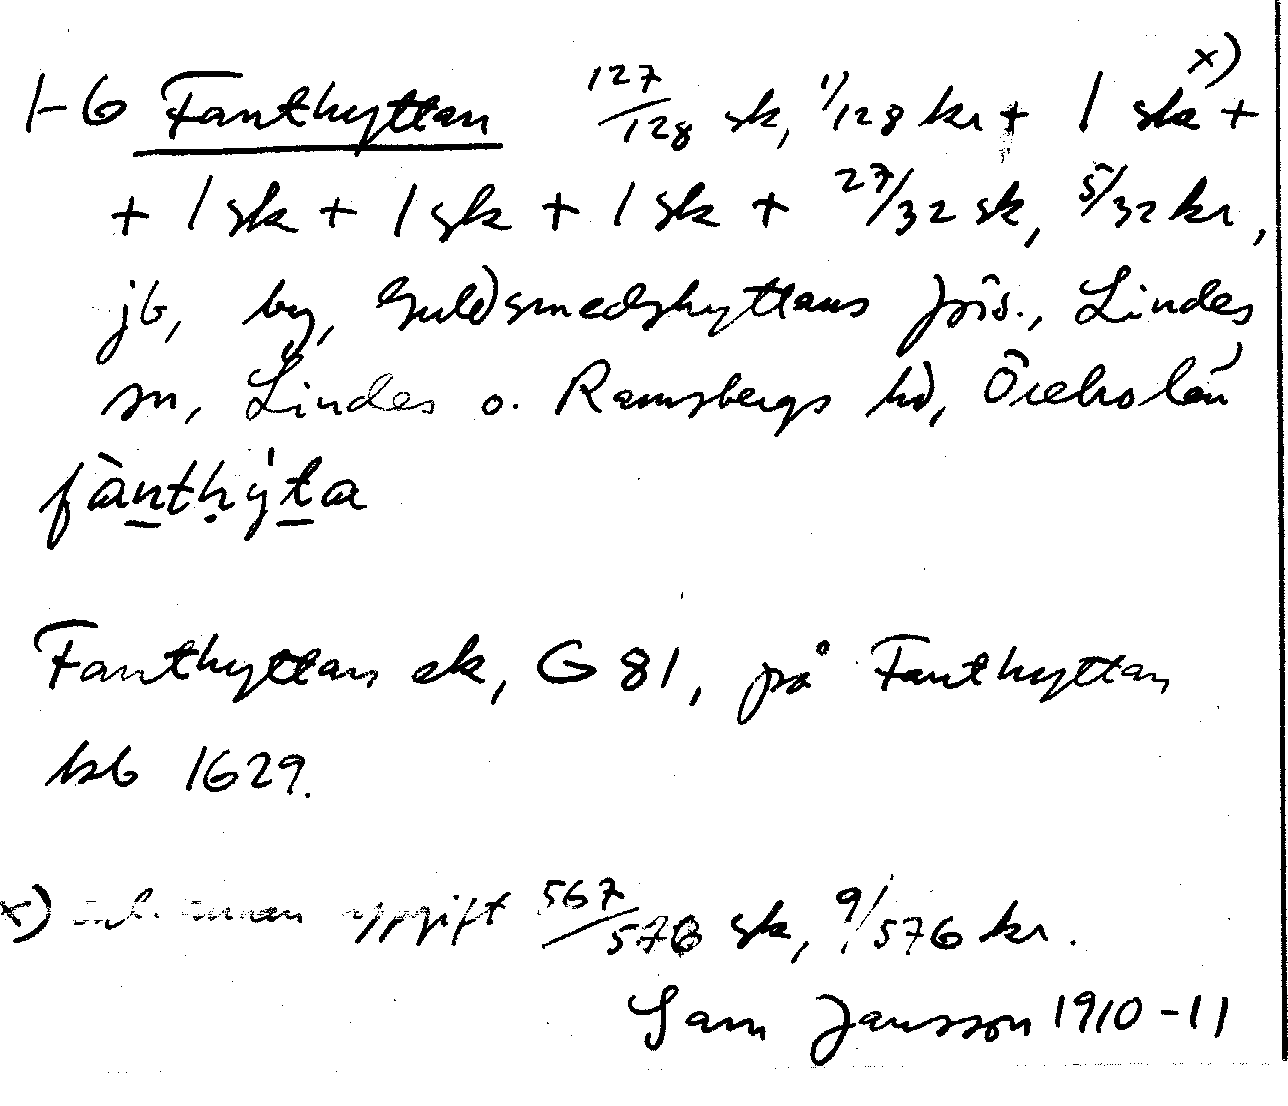 1-6 Fanthyttan 127/128 sk, 1/128 kr + 1 sk x) +
+ 1 sk + 1 sk + 1 sk + 27/32 sk, 5/32 kr,
jb, by, Guldsmedshyttans förs., Lindes
sn, Lindes o. Ramsbergs hd, Örebro län
fànthy̍ta
Fanthyttan ek, G 81, på Fanthyttan
bsb 1629.
x) enl. annan uppgift 567/576 sk, 9/576 kr.
Sam Jansson 1910-11